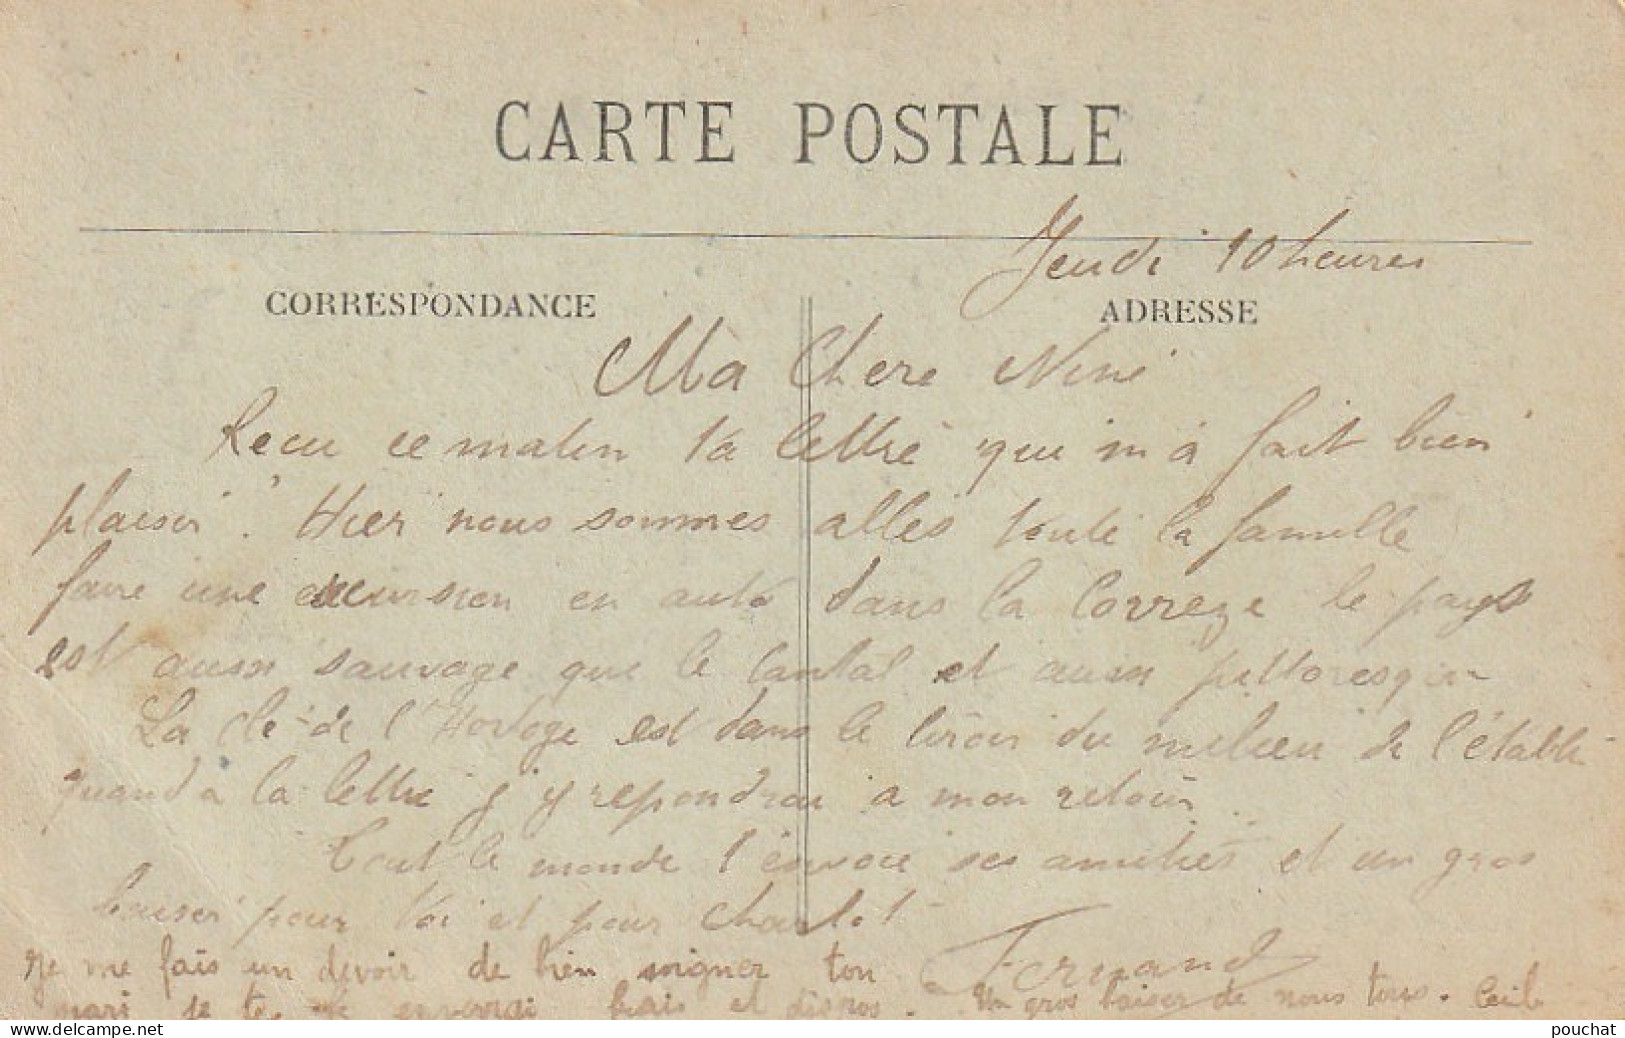 CARTE POSTALE
Jeudi 10 heures
CORRESPONDANCE
ADRESSE
Ma Chere Nini
Recu ce matin ta lettre qui m'a fait bien
plaisir. Hier nous sommes allés toute la famille
faire une excursion en auto dans la Correze le pays
est aussi sauvage que le Cantal et aussi pittoresque
La clé de l'Horloge est dans le tiroir du milieu de l'établi
quand à la lettre j'y repondrai a mon retour
Tout le monde t'envoie ses amitiés et un gros
baiser pour toi et pour Charlot
Fernand
Je me fais un devoir de bien soigner ton
mari je te enverrai frais et dispos. Un gros baiser de nous tous. Cecile
pouchat